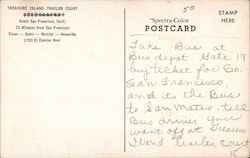 TREASURE ISLAND TRAILER COURT
South San Francisco, Calif.
15 Minutes from San Francisco
Clean - Quiet - Restful - Homelike
1700 El Camino Real
50
"Spectra-Color"
POSTCARD
STAMP
HERE
Take Bus at
Bus depot Gate 19
buy ticket for So.
San Francisco,
and its the Bus
to San Mateo, tell
Bus driver you
want off at Treasure
Island Trailer Court